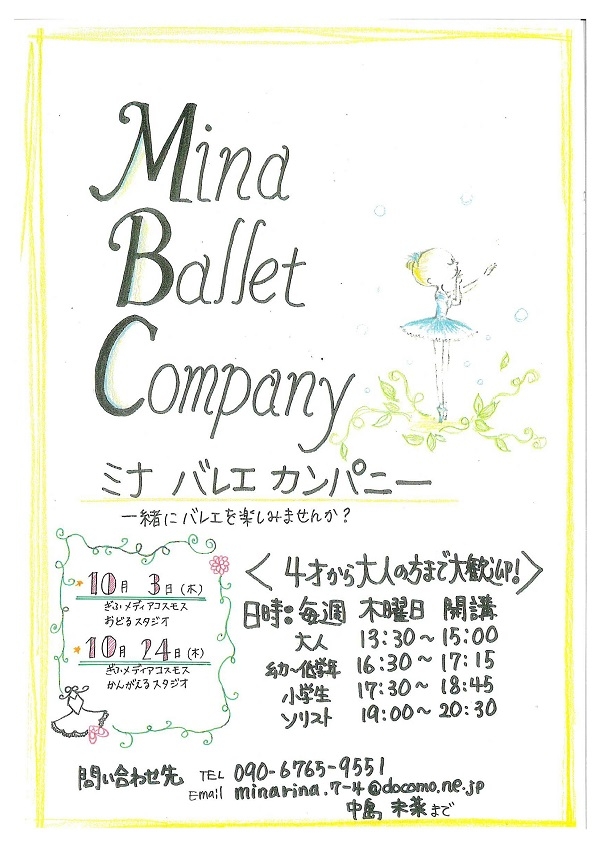 Mina
Ballet
Company
ミナ バレエ カンパニー
一緒にバレエを楽しみませんか?
10月 3日(木)
ぎふメディアコスモス
おどるスタジオ
10月 24日(木)
ぎふメディアコスモス
かんがえるスタジオ
〈 4才から大人の方まで大歓迎!〉
日時:毎週 木曜日 開講
大人 13:30~15:00
幼~低学年 16:30~17:15
小学生 17:30~18:45
ソリスト 19:00~20:30
問い合わせ先 TEL 090-6765-9551
Email minarina.7-4@docomo.ne.jp
中島 未菜まで